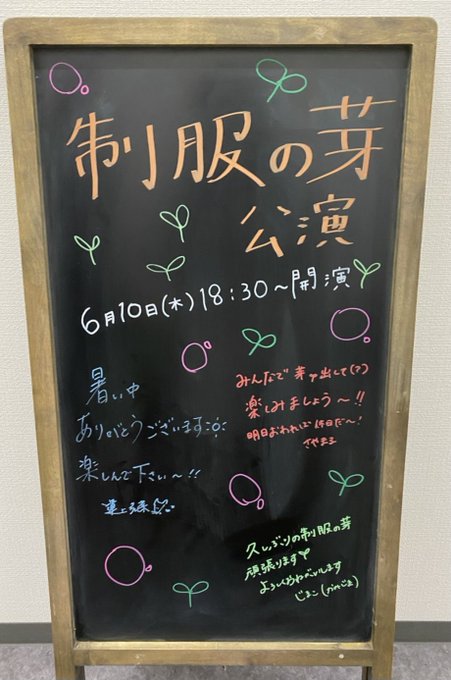 制服の芽
公演
6月10日(木)18:30~開演
暑い中
ありがとうございます
楽しんで下さい~!!
みんなで芽ァ出して(?)
楽しみましょう~!!
明日おわれば休日だ~!
さやまる
久しぶりの制服の芽
頑張ります♥
よろしくおねがいします
じまこ